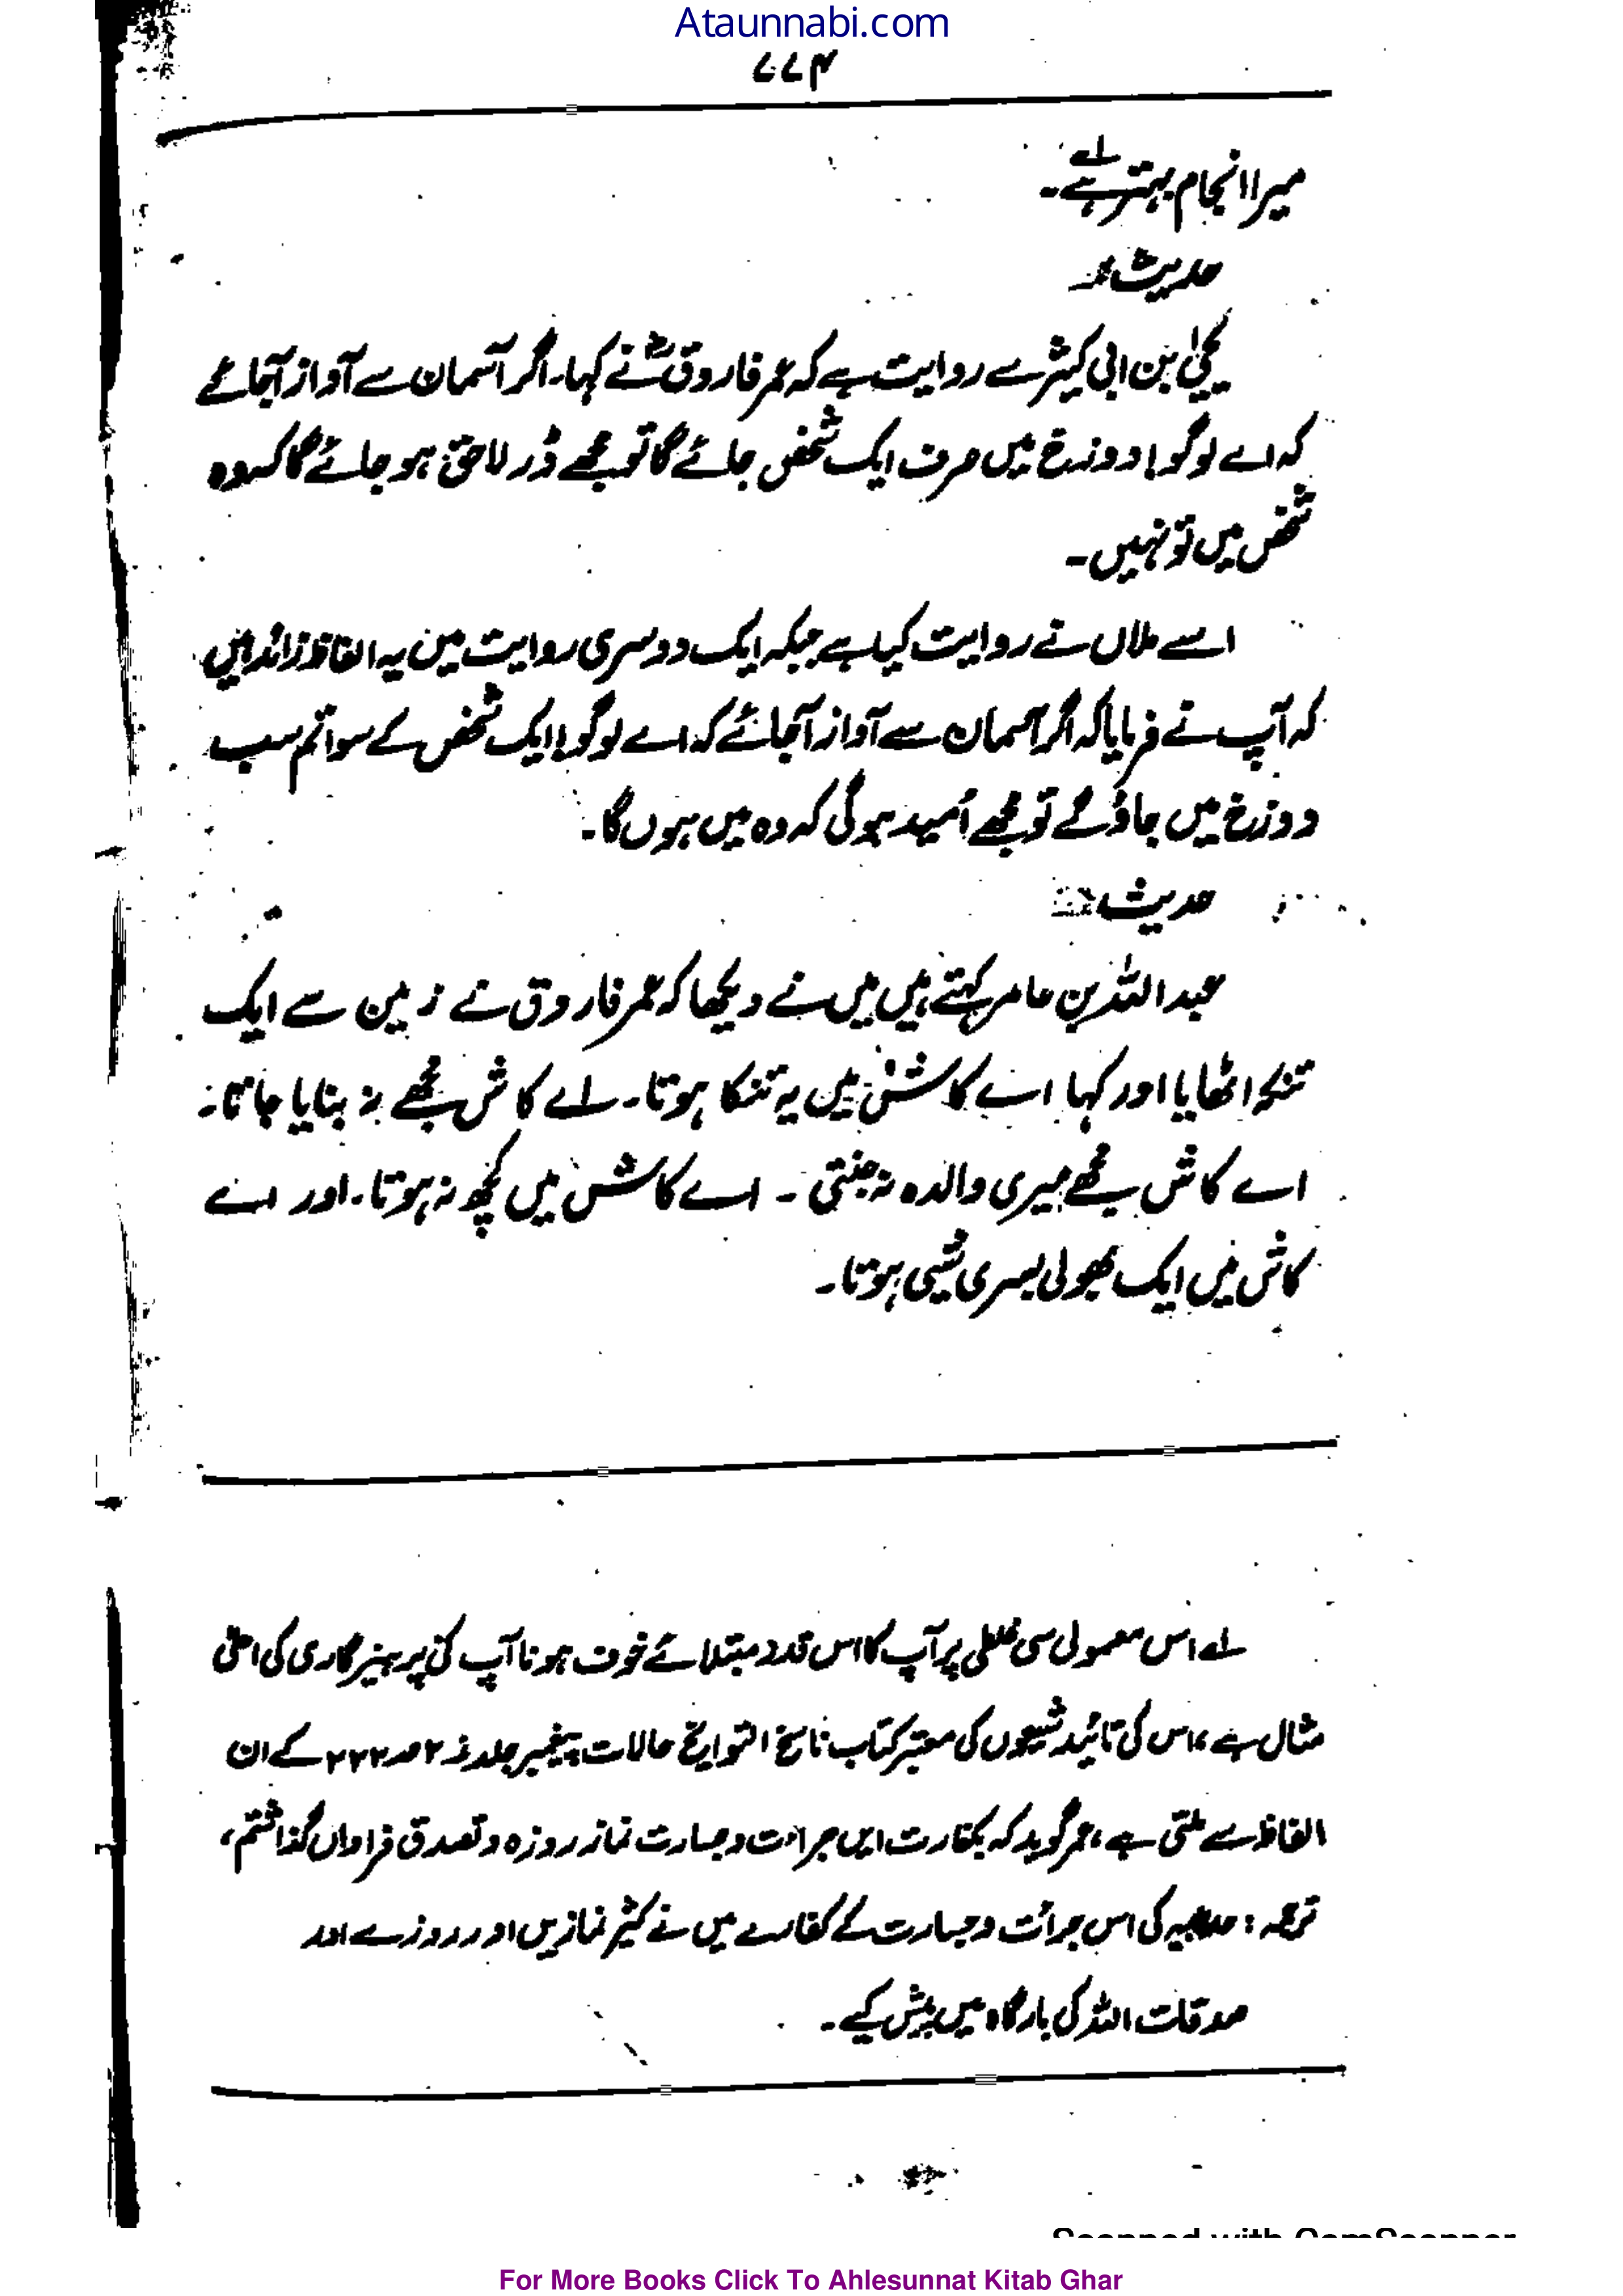 Ataunnabi.com
۷۷۴
میرا انجام بہتر ہے۔ لے
حدیث
یحیٰی بن ابی کثیر سے روایت ہے کہ عمر فاروقؓ نے کہا۔ اگر آسمان سے آواز آجائے
کہ اے لوگو! دوزخ میں صرف ایک شخص جائے گا تو مجھے ڈر لاحق ہو جائے گا کہ وہ
شخص میں تو نہیں۔
اسے ملاں نے روایت کیا ہے جبکہ ایک دوسری روایت میں یہ الفاظ زائد ہیں
کہ آپ نے فرمایا کہ اگر آسمان سے آواز آجائے کہ اے لوگو! ایک شخص کے سوا تم سب
دوزخ میں جاؤ گے تو مجھے اُمید ہو گی کہ وہ میں ہوں گا۔
حدیث
عبداللہ بن عامر کہتے ہیں میں نے دیکھا کہ عمر فاروق نے زمین سے ایک
تنکہ اٹھایا اور کہا اے کاش میں یہ تنکا ہوتا۔ اے کاش مجھے نہ بنایا جاتا۔
اے کاش مجھے میری والدہ نہ جنتی۔ اے کاش میں کچھ نہ ہوتا۔ اور اے
کاش میں ایک بھولی بسری شیی ہوتا۔
لے اس معمولی سی غلطی پر آپ کا اس قدر مبتلائے خوف ہونا آپ کی پرہیزگاری کی اعلیٰ
مثال ہے، اس کی تائید شیعوں کی معتبر کتاب ناسخ التواریخ حالات پیغمبر جلد ۲ ص ۲۲۲ کے ان
الفاظ سے ملتی ہے، عمر گوید کہ بکفارت ایں جراءت و جسارت نماز روزہ و تصدق فراواں گذاشتم،
ترجمہ: حدیبیہ کی اس جرائت و جسارت کے کفارے میں نے کثیر نمازیں اور روزے اور
صدقات اللہ کی بارگاہ میں پیش کیے۔
Scanned with CamScanner
For More Books Click To Ahlesunnat Kitab Ghar